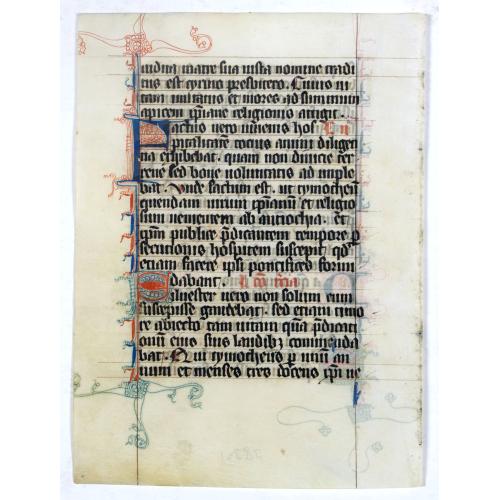 iudita matre sua iusta nomine tradi
tus est cyrino presbitero. Cuius ui
tam imitatus et mores ad summum
apicem xpiane religionis attigit.
Factus uero iuuenis hos
pitalitati totius animi diligen
tia exhibebat. quam non diuicie ter
rene sed bone uoluntatis ad imple
bat. Unde factum est. ut tymotheu
quendam uirum xpianum et religio
sum uenientem ab antiochia. et
xpm publice predicantem tempore per
secutionis hospitem susceperit. quod
etiam facere ipsi pontifices formi
dabant.
Siluester uero non solum eum
suscepisse gaudebat. sed etiam timo
re abiecto tam uitam quam predicati
onem eius suis laudibus commenda
bat. Qui tymotheus per unum an
num et menses tres docens xpi ue